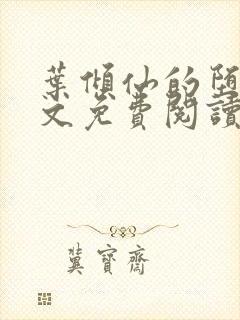 葉傾仙的堕
文免費閱讀
冀寶齋